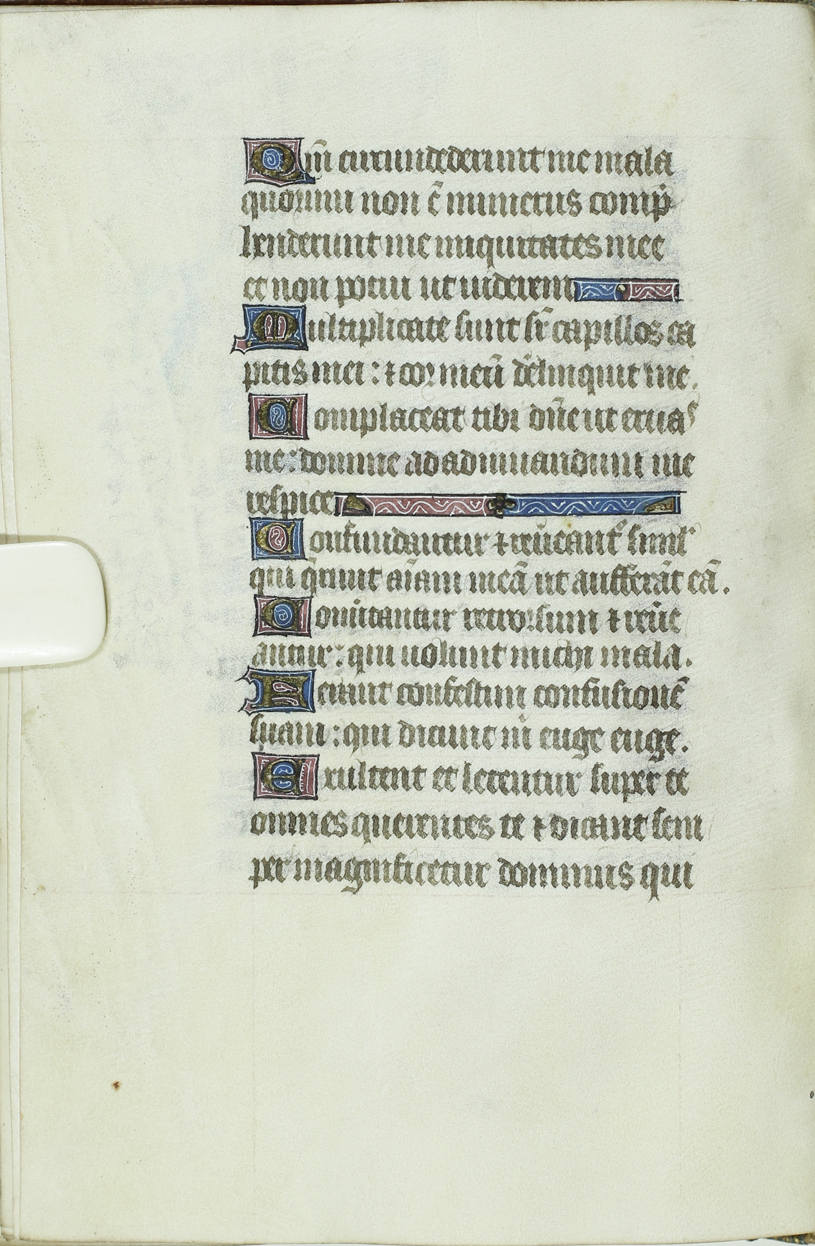 Qm̅ circundederunt me mala
quorum non ē numerus comp̄
henderunt me iniquitates mee
et non potui ut viderem
Multiplicate sunt sr̄ capillos ca
pitis mei : ⁊ cor meū d̄eliuquit me.
Complaceat tibi dn̄e ut eruas
me : domine ad adiuuandum me
respice
Confundantur ⁊ reūeant᷑ simil᷑
qui q̄runt aīam meā ut aufferāt eā.
Conūtantur retrorsum ⁊ reūe
antur : qui uolunt michi mala.
Ferant confestim confusionē
suam : qui dicunt m̄ euge euge.
Exultent et letentur super te
omnes querentes te ⁊ dicant sem
per magnificetur dominus qui